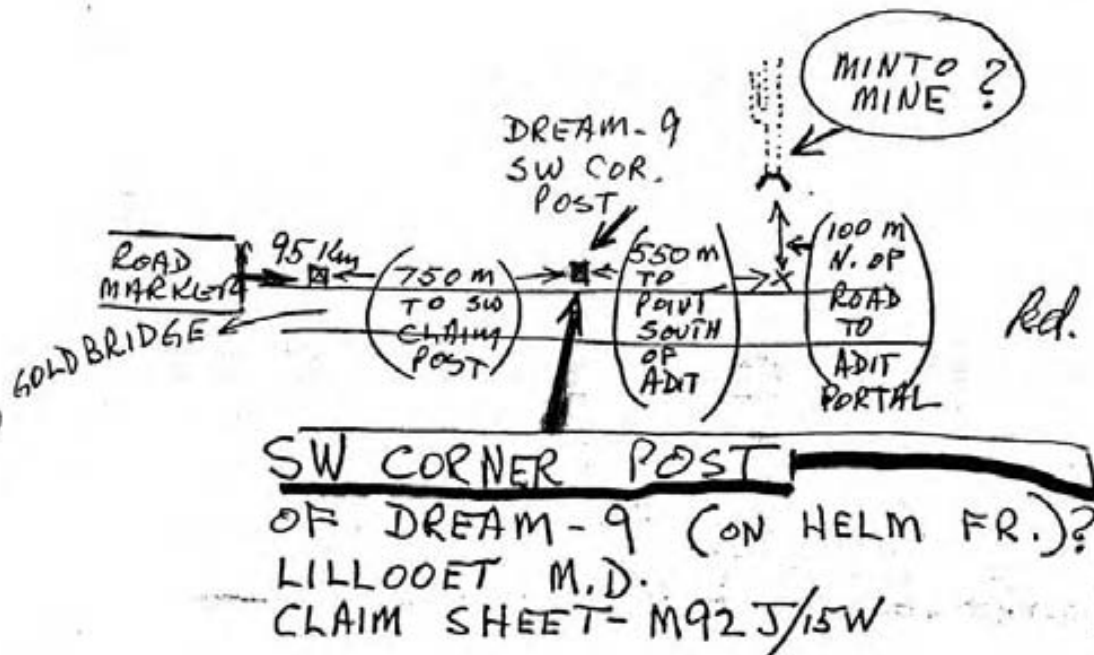 MINTO
MINE ?
DREAM-9
SW COR.
POST
ROAD
MARKER
95 Km
750 m
TO SW
CLAIM
POST
550 m
TO
POINT
SOUTH
OF
ADIT
100 m
N. OF
ROAD
TO
ADIT
PORTAL
Rd.
GOLDBRIDGE
SW CORNER POST
OF DREAM-9 (ON HELM FR.)?
LILLOOET M.D.
CLAIM SHEET- M92J/15W